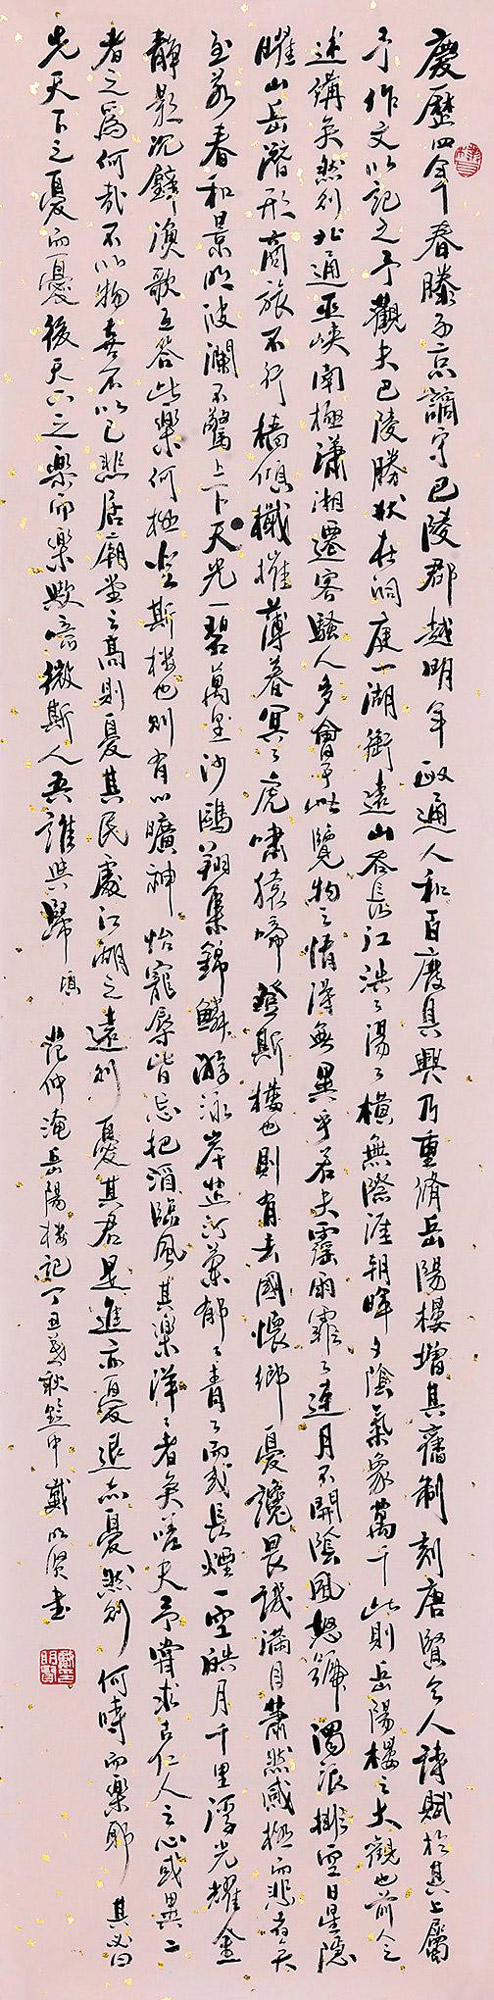 慶歷四年春滕子京謫守巴陵郡越明年政通人和百廢具興乃重脩岳陽樓增其舊制刻唐賢今人詩賦於其上屬
予作文以記之予觀夫巴陵勝狀在洞庭一湖銜遠山吞長江浩々湯々橫無際涯朝暉夕陰氣象萬千此則岳陽樓之大觀也前人之
述備矣然則北通巫峽南極瀟湘遷客騷人多會于此覽物之情得無異乎若夫霪雨霏々連月不開陰風怒號濁浪排空日星隱
曜山岳潛形商旅不行檣傾檝摧薄暮冥々虎嘯猿啼登斯樓也則有去國懷鄉憂讒畏譏滿目蕭然感極而悲者矣
至若春和景明波瀾不驚上下天光一碧萬里沙鷗翔集錦鱗游泳岸芷汀蘭郁々青々而或長煙一空皓月千里浮光耀金
靜影沉璧漁歌互答此樂何極登斯樓也則有心曠神怡寵辱皆忘把酒臨風其樂洋々者矣嗟夫予嘗求古仁人之心或異二
者之為何哉不以物喜不以己悲居廟堂之高則憂其民處江湖之遠則憂其君是進亦憂退亦憂然則何時而樂耶其必曰
先天下之憂而憂後天下之樂而樂歟噫微斯人吾誰與歸
范仲淹岳陽樓記丁丑冬歇黔中戴明賢書